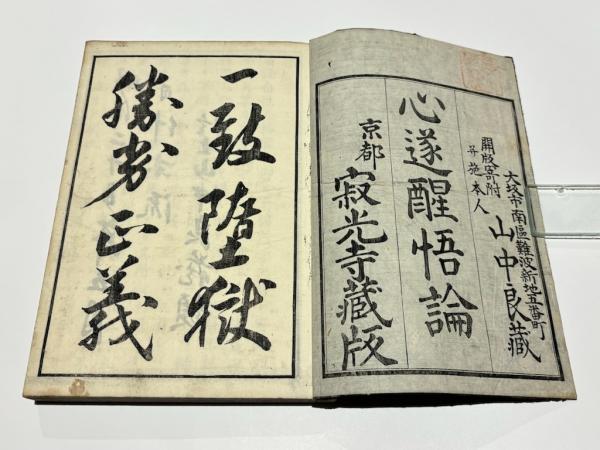 大坂市南區難波新地五番町
開版寄附
并施本人
山中良藏
心遂醒悟論
京都 寂光寺藏版
一致墮獄
勝劣正義